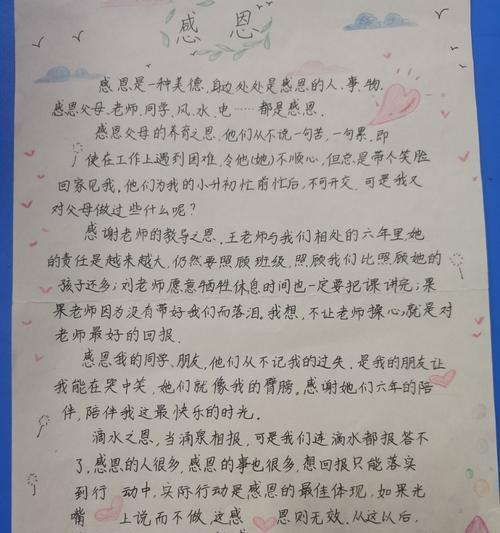 感恩
感恩是一种美德,身边处处是感恩的人、事、物.
感恩父母、老师、同学、风、水、电……都是感恩.
感恩父母的养育之恩,他们从不说一句苦,一句累.即
使在工作上遇到困难,令他(她)不顺心,但总是带个笑脸
回家见我.他们为我的小升初忙前忙后,不可开交.可是我又
对父母做过些什么呢?
感谢老师的教导之恩.王老师与我们相处的六年里,她
的责任是越来越大,仍然要照顾班级,照顾我们比照顾她的
孩子还多;刘老师愿意牺牲休息时间也一定要把课讲完;果
果老师因为没有带好我们而落泪.我想,不让老师操心,就是对
老师最好的回报.
感恩我的同学、朋友,他们从不记我的过失.是我的朋友让
我能在哭中笑,她们就像我的臂膀.感谢她们六年的陪
伴,陪伴我这最快乐的时光.
滴水之恩,当涌泉相报,可是我们连滴水都报答不
了.感恩的人很多,感恩的事也很多,想回报只能落实
到行动中.实际行动是感恩的最佳体现,如果光
嘴上说而不做,这感恩则无效.从这以后,